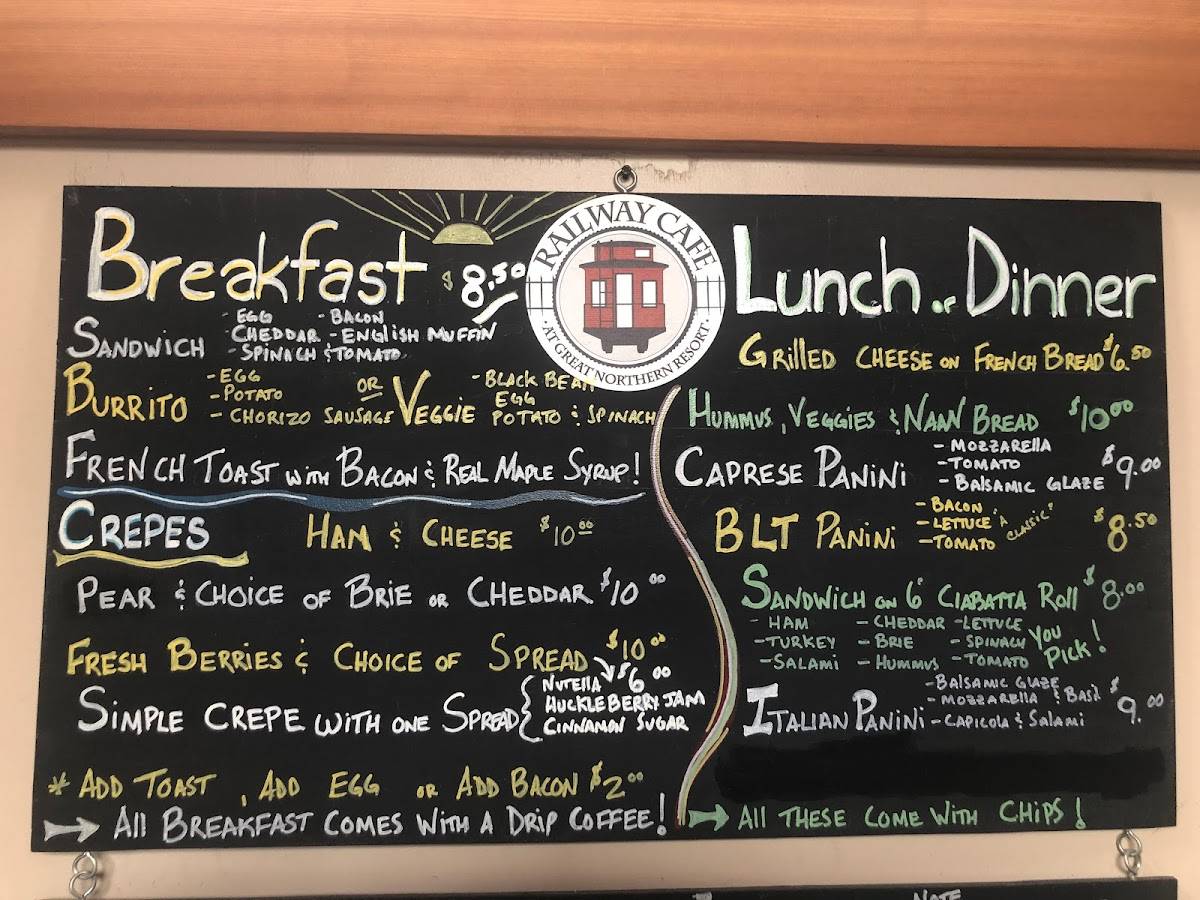 Breakfast $8.50
SANDWICH
- EGG - BACON
- CHEDDAR - ENGLISH MUFFIN
- SPINACH & TOMATO
BURRITO
- EGG
- POTATO
- CHORIZO SAUSAGE
OR
VEGGIE
- BLACK BEAN
EGG
POTATO & SPINACH
FRENCH TOAST WITH BACON & REAL MAPLE SYRUP!
CREPES
HAM & CHEESE $10.00
PEAR & CHOICE OF BRIE OR CHEDDAR $10.00
FRESH BERRIES & CHOICE OF SPREAD $10.00
SIMPLE CREPE WITH ONE SPREAD $6.00
NUTELLA
HUCKLEBERRY JAM
CINNAMON SUGAR
* ADD TOAST, ADD EGG OR ADD BACON $2.00
All BREAKFAST COMES WITH A DRIP COFFEE!
RAILWAY CAFE
· AT GREAT NORTHERN RESORT ·
Lunch or Dinner
GRIlled CHEESE ON FRENCH BREAD $6.50
HUMMUS, VEGGIES & NAAN BREAD $10.00
CAPRESE PANINI $9.00
- MOZZARELLA
- TOMATO
- BALSAMIC GLAZE
BLT PANINI $8.50
- BACON
- LETTUCE
- TOMATO
"A CLASSIC"
SANDWICH ON 6" CIABATTA ROLL $8.00
- HAM - CHEDDAR - LETTUCE
- TURKEY - BRIE - SPINACH
- SALAMI - HUMMUS - TOMATO
YOU PICK!
ITALIAN PANINI $9.00
- BALSAMIC GLAZE
- MOZZARELLA & BASIL
- CAPICOLA & SALAMI
All THESE COME WITH CHIPS!
NOTE